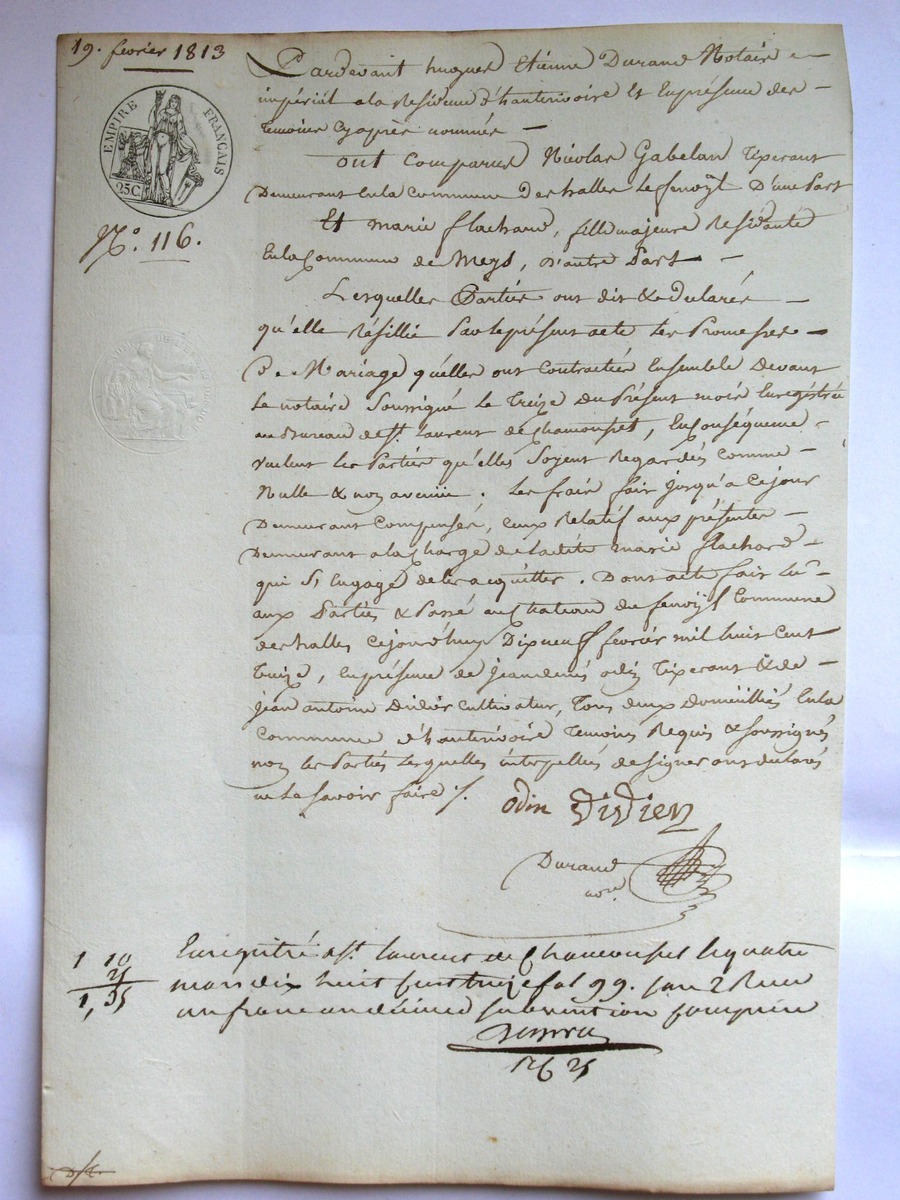 19. fevrier 1813
EMPIRE FRANÇAIS
25C
N.º 116.
Pardevant hugues Etienne Durand Notaire
impérial a la Residence d'hauterivoire Et En présence des
temoins Cyaprès nommés —
ont Comparus Nicolas Gabelan Tixerant
Demeurant En la Commune des halles Le fenoÿl D'une Part
Et marie flachard, fille majeure Residante
En la Commune de Meys, D'autre Part —
Lesquelles Parties ont dit & declarés —
qu'elle Résillie Par le présent acte les Promesses —
De Mariage qu'elles ont Contractées Ensemble Devant
Le notaire Soussigné Le treize Du Présent mois Enregistrée
au Bureau de St. Laurent de Chamousset, En Conséquence
veulent les Parties qu'elles Soyent Regardés Comme —
Nulle & non avenue. Les frais fait Jusqu'a Ce jour
Demeurant Compensés, Ceux Relatif aux présentes —
Demeurant a la Charge de ladite marie flachard —
qui S'Engage de les acquitter. Dont acte fait Lu
aux Parties & Passé au Chateau du fenoÿl Commune
des halles Cejourd'huy Dix neuf fevrier mil huit Cent
treize, En présence de Jean denis odin Tixerant & de —
Jean antoine Didier Cultivateur, Tous deux Domiciliés En la
Commune d'hauterivoire Temoins Requis & Soussignés
non les Parties Lesquelles interpellées de signer ont declarés
ne Le Savoir faire /.
odin Didier
Durand
nore.
Enregistré a St. laurent de Chamousset le quatre
mars dix huit cent treize fol 99.
un franc un décime subvention comprise
1 10